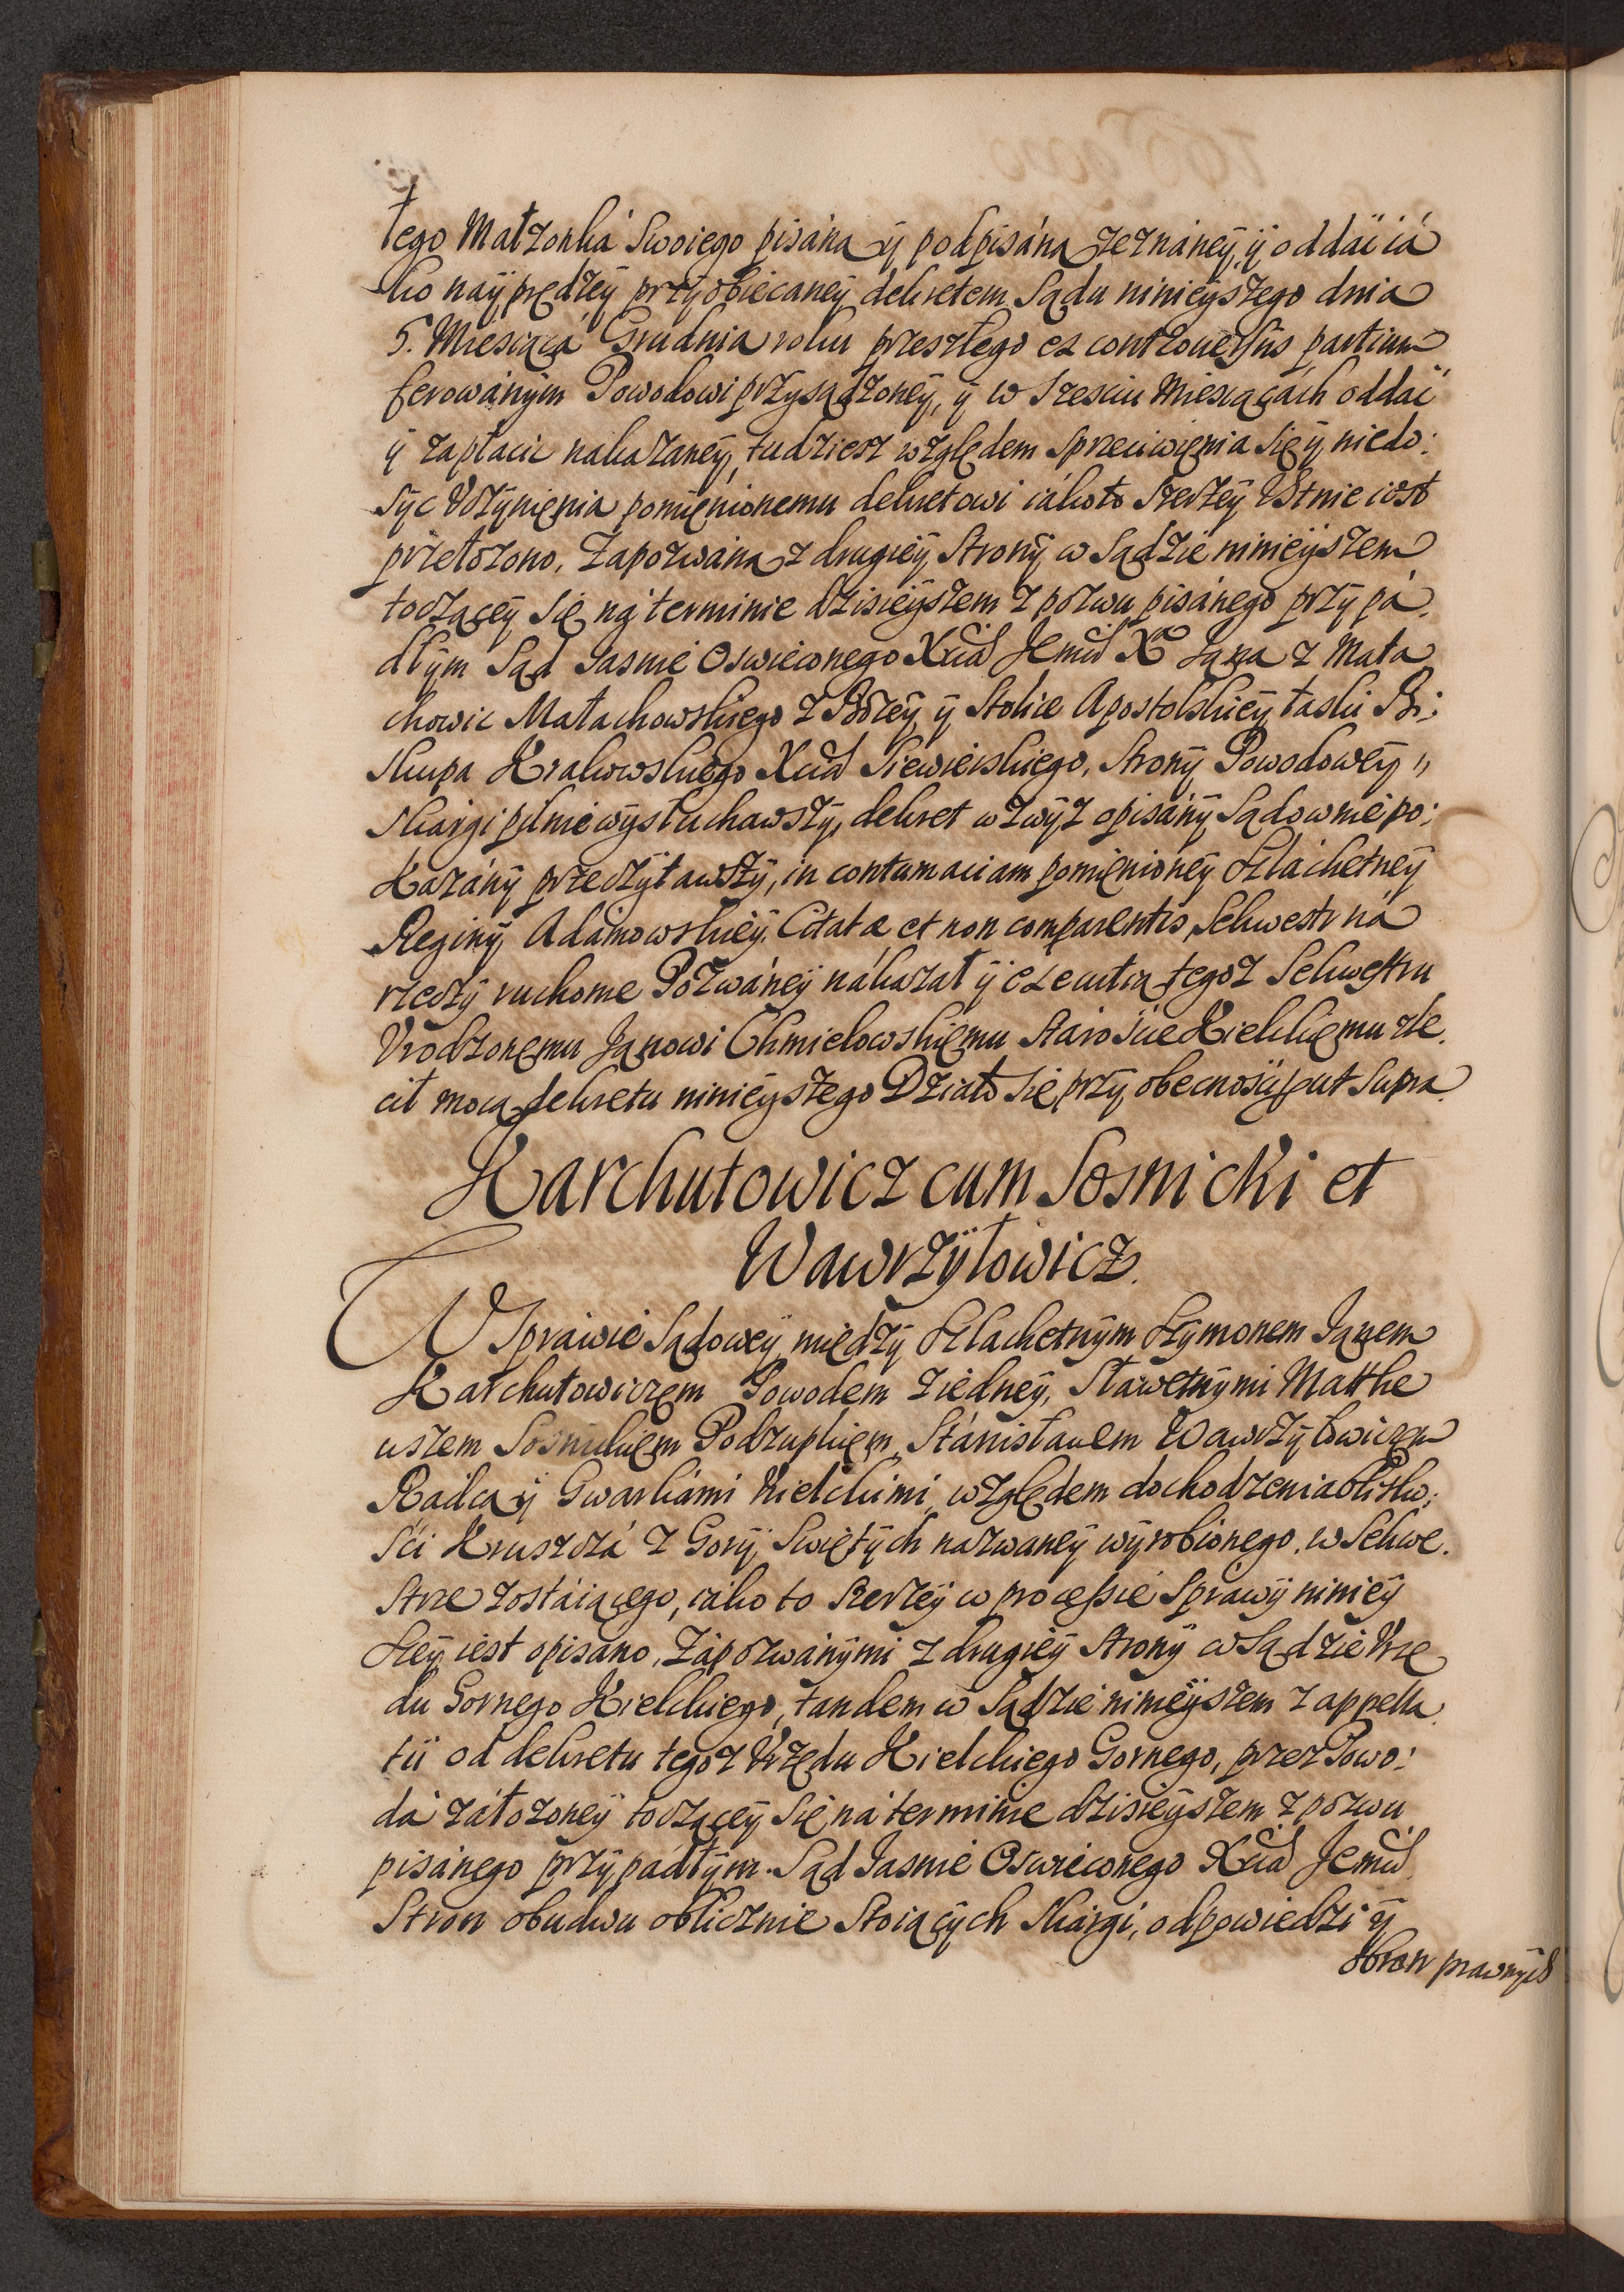 tego Małzonká Swoiego pisáną ÿ podpisáną zeznáneÿ, ÿ oddáć iá
ko naÿprędzeÿ przÿobiecaneÿ dekretem Sądu ninieÿszego dnia
5. Miesiąca Grudnia roku przeszłego ex controuersiis partium
ferowánÿm Powodowi przÿsądzoneÿ, ÿ w Szesciu Miesiącách oddáć
ÿ zapłacic nakazaneÿ, tudziesz względem Sprzeciwienia się ÿ niedo:
sÿc Vczÿnienia pomienionemu dekretowi iákoto Szerzeÿ Vstnie iest
przełozono, Zapozwáną z drugieÿ Stronÿ, w Sądzie ninieÿszem
toczącey się ná terminie dzisieÿszem z pozwu pisánego przÿpá
dłÿm Sąd Jasnie Oswieconego Xcia Jemci X Jana z Mała
chowic Małachowskiego z Bożeÿ ÿ Stolice Apostolskieÿ łaski Bi:
skupa Krakowskiego Xcia Siewierskiego, Stronÿ Powodoweÿ
Skárgi pilnie wÿsłuchawszÿ, dekret wzwÿz opisánÿ Sądownie po:
kazánÿ przeczÿtawszÿ, in contumaciam pomienioneÿ Szláchetneÿ
Reginÿ Adámowskieÿ, Citatæ et non comparentis, Sekwestr ná
rzeczÿ ruchome Pozwáneÿ nákazał ÿ exekutią tegoz Sekwestru
Vrodzonemu Janowi Chmielowskiemu Stárościе Kielckiemu zle
cił mocą dekretu ninieÿszego Działo się przÿ obecnosci, ut Supra
Karchutowicz cum Sosnicki et
Wawrzÿłowicz.
W Spráwie Sądoweÿ miedzÿ Szlachetnÿm Szÿmonem Janem
Karchutowiczem Powodem z iedneÿ, Sławetnÿmi Matthe
uszem Sosnickiem Podzupkiem, Stánisławem Wawrzÿłowiczem
Radcą ÿ Gwarkámi Kielckimi, względem dochodzenia bliskо:
ści Kruszczá z Gorÿ Swiętÿch nazwaneÿ wÿrobionego, w Sekwe
strze zostáiącego, iáko to Szerzeÿ w processie Sprawÿ niniey
szeÿ iest opisáno, Zápozwánÿmi z drugieÿ Stronÿ w Sądzie Vrzę
du Gornego Kielckiego, tandem w Sądzie ninieÿszem z appella
tii od dekretu tegoz Vrzędu Kielckiego Gornego, przez Powo:
dá záłozoneÿ toczącеÿ się ná terminie dzisieÿszem z pozwu
pisánego przÿpádłÿm. Sąd Jasnie Oswieconego Xcia Jemci
Stron obudwu oblicznie Stoiącÿch Skárgi, odpowiedzi ÿ
obron prawnÿch